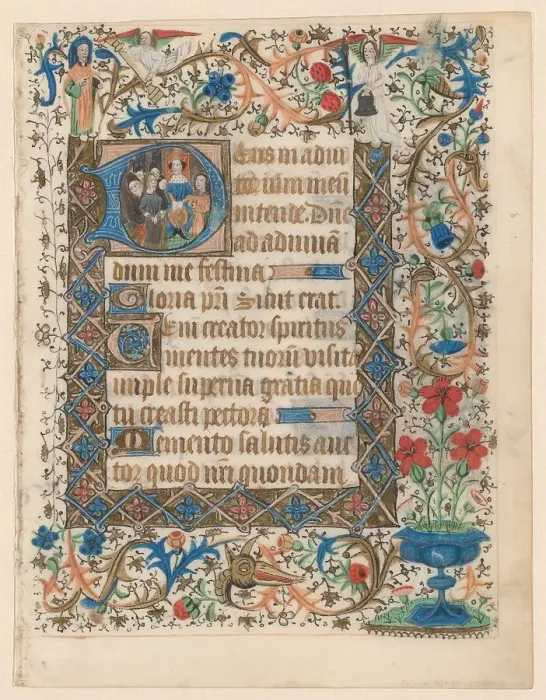 Deus in adiu
toriū m meū
intende. Dne
ad adiuuā
dum me festina
Gloria pri Sicut erat.
Ueni creator spiritus
mentes tuorū visita
imple superna gratia que
tu creasti pectora
Memento salutis auc
tor quod nri quondam